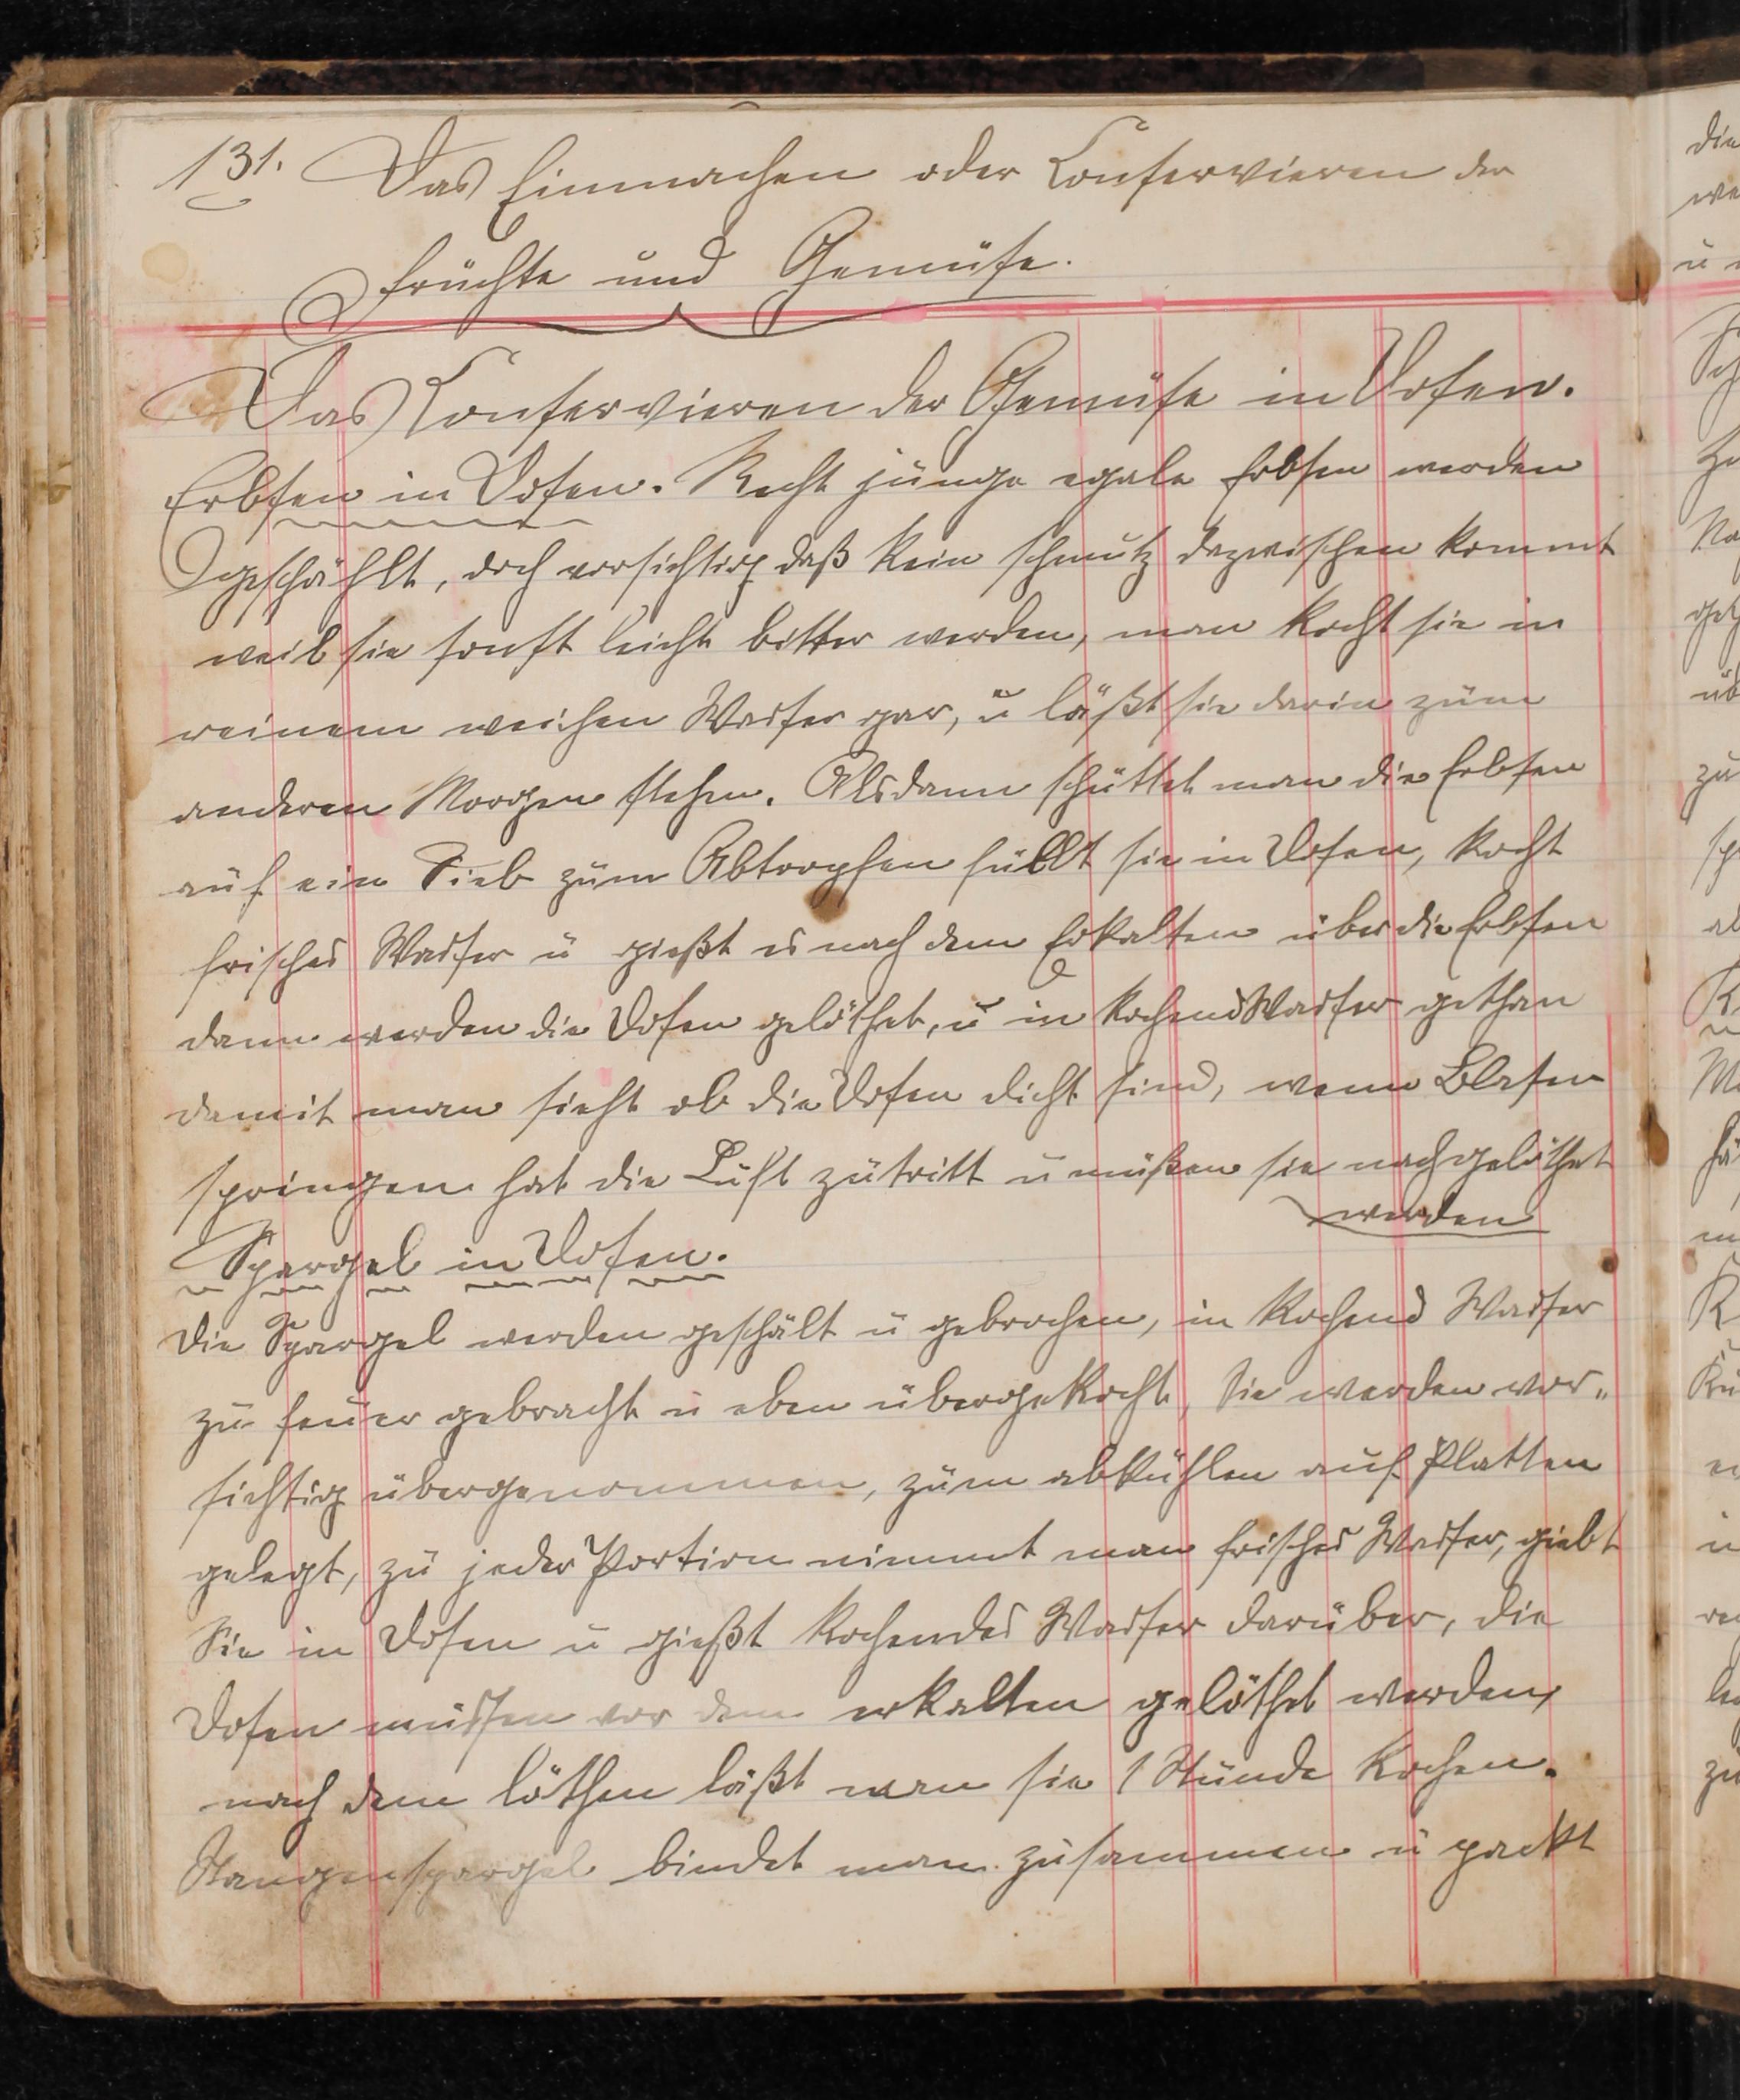 131. Das Einmachen oder Conservieren der
Früchte und Gemüse.
Das Conservieren der Gemüse in Dosen.
Erbsen in Dosen. Recht junge egale Erbsen werden
geschählt, doch vorsichtig daß kein schmutz dazwischen kommt
weil sie sonst leicht bitter werden, man kocht sie in
reinem weichen Wasser gar, u läßt sie darin zum
anderen Morgen stehen. Alsdann schüttet man die Erbsen
auf ein Sieb zum Abtropfen füllt sie in Dosen, kocht
frisches Wasser u gießt es nach dem Erkalten über die Erbsen
dann werden die Dosen gelöthet, u in kochend Wasser gethan
damit man sieht ob die Dosen dicht sind, wenn Blasen
springen hat die Luft zutritt u müßen sie nachgelöthet
werden
Spargel in Dosen.
Die Spargel werden geschält u gebrochen, in kochend Wasser
zu feuer gebracht u eben übergekocht, Sie werden vor„
sichtig übergenommen, zum abkühlen auf Platten
gelegt, zu jeder Portion nimmt man frisches Wasser, giebt
Sie in Dosen u gießt kochendes Wasser darüber, die
Dosen müssen vor dem erkalten gelöthet werden,
nach dem löthen läßt man sie 1 Stunde kochen.
Stangenspargel bindet man zusammen u packt